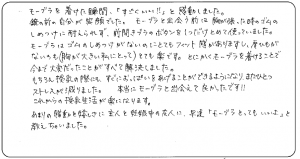 モーブラを着けた瞬間、「すごくいい!!」と感動しました。
鏡の前の自分が笑顔でした。モーブラと出会う前は胸が張った時のゴムの
しめつけに耐えられず、前開きブラのボタンを1つだけとめて使っていました。
モーブラはゴムのしめつけがないのにとてもフィット感があります。厚ひもが
ないのも(胸が大きい私にとって)とても楽です。とにかくモーブラを着けることで
今まで大変だったことがすべて解決しました。
もちろん授乳の際にも、すぐにおっぱいをあげることができるようになりまたひとつ
ストレスが減りました。本当にモーブラと出会えて良かったです!!
これからの授乳生活が楽になります。
あまりの感動と嬉しさに友人と妊婦中の友人に、早速「モーブラとってもいいよ」と
教えちゃいました。